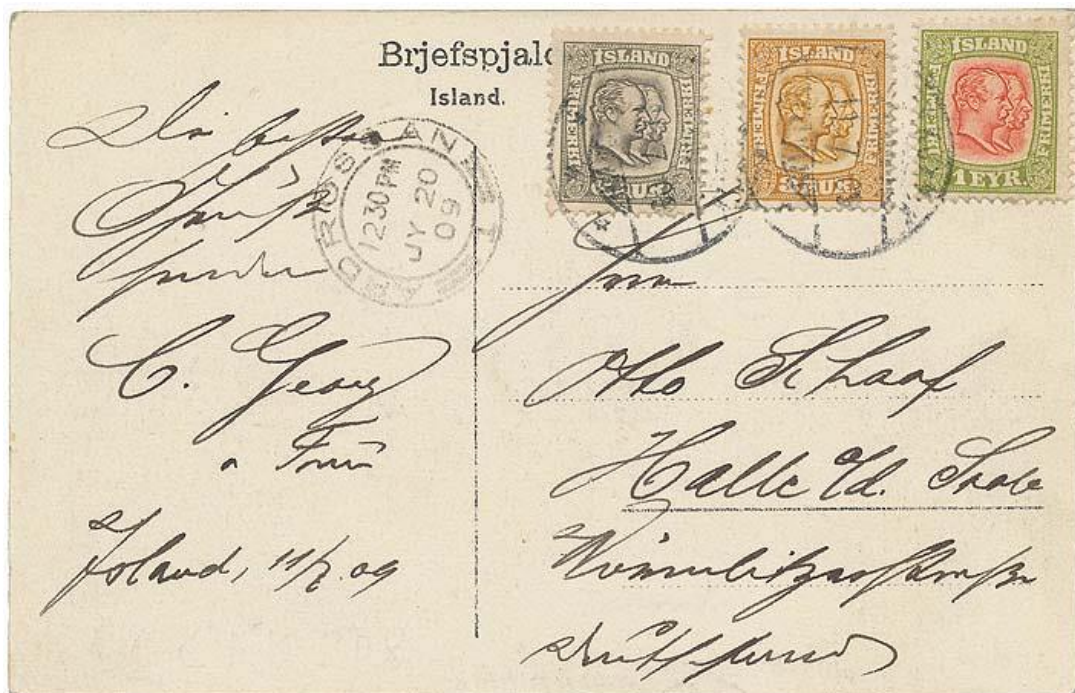 Brjefspjald
Island.
ÍSLAND
FRÍMERKI
AUR
ÍSLAND
FRÍMERKI
3 AUR
ÍSLAND
FRÍMERKI
1 EYR.
ARDROSSAN
12 30 PM
JY 20
09
Die besten
Grüße
senden
C. Georg
u Frau
Island, 11/7.09
Herrn
Otto Schaaf
Halle a/d. Saale
Wörmlitzerstraße
Deutschland